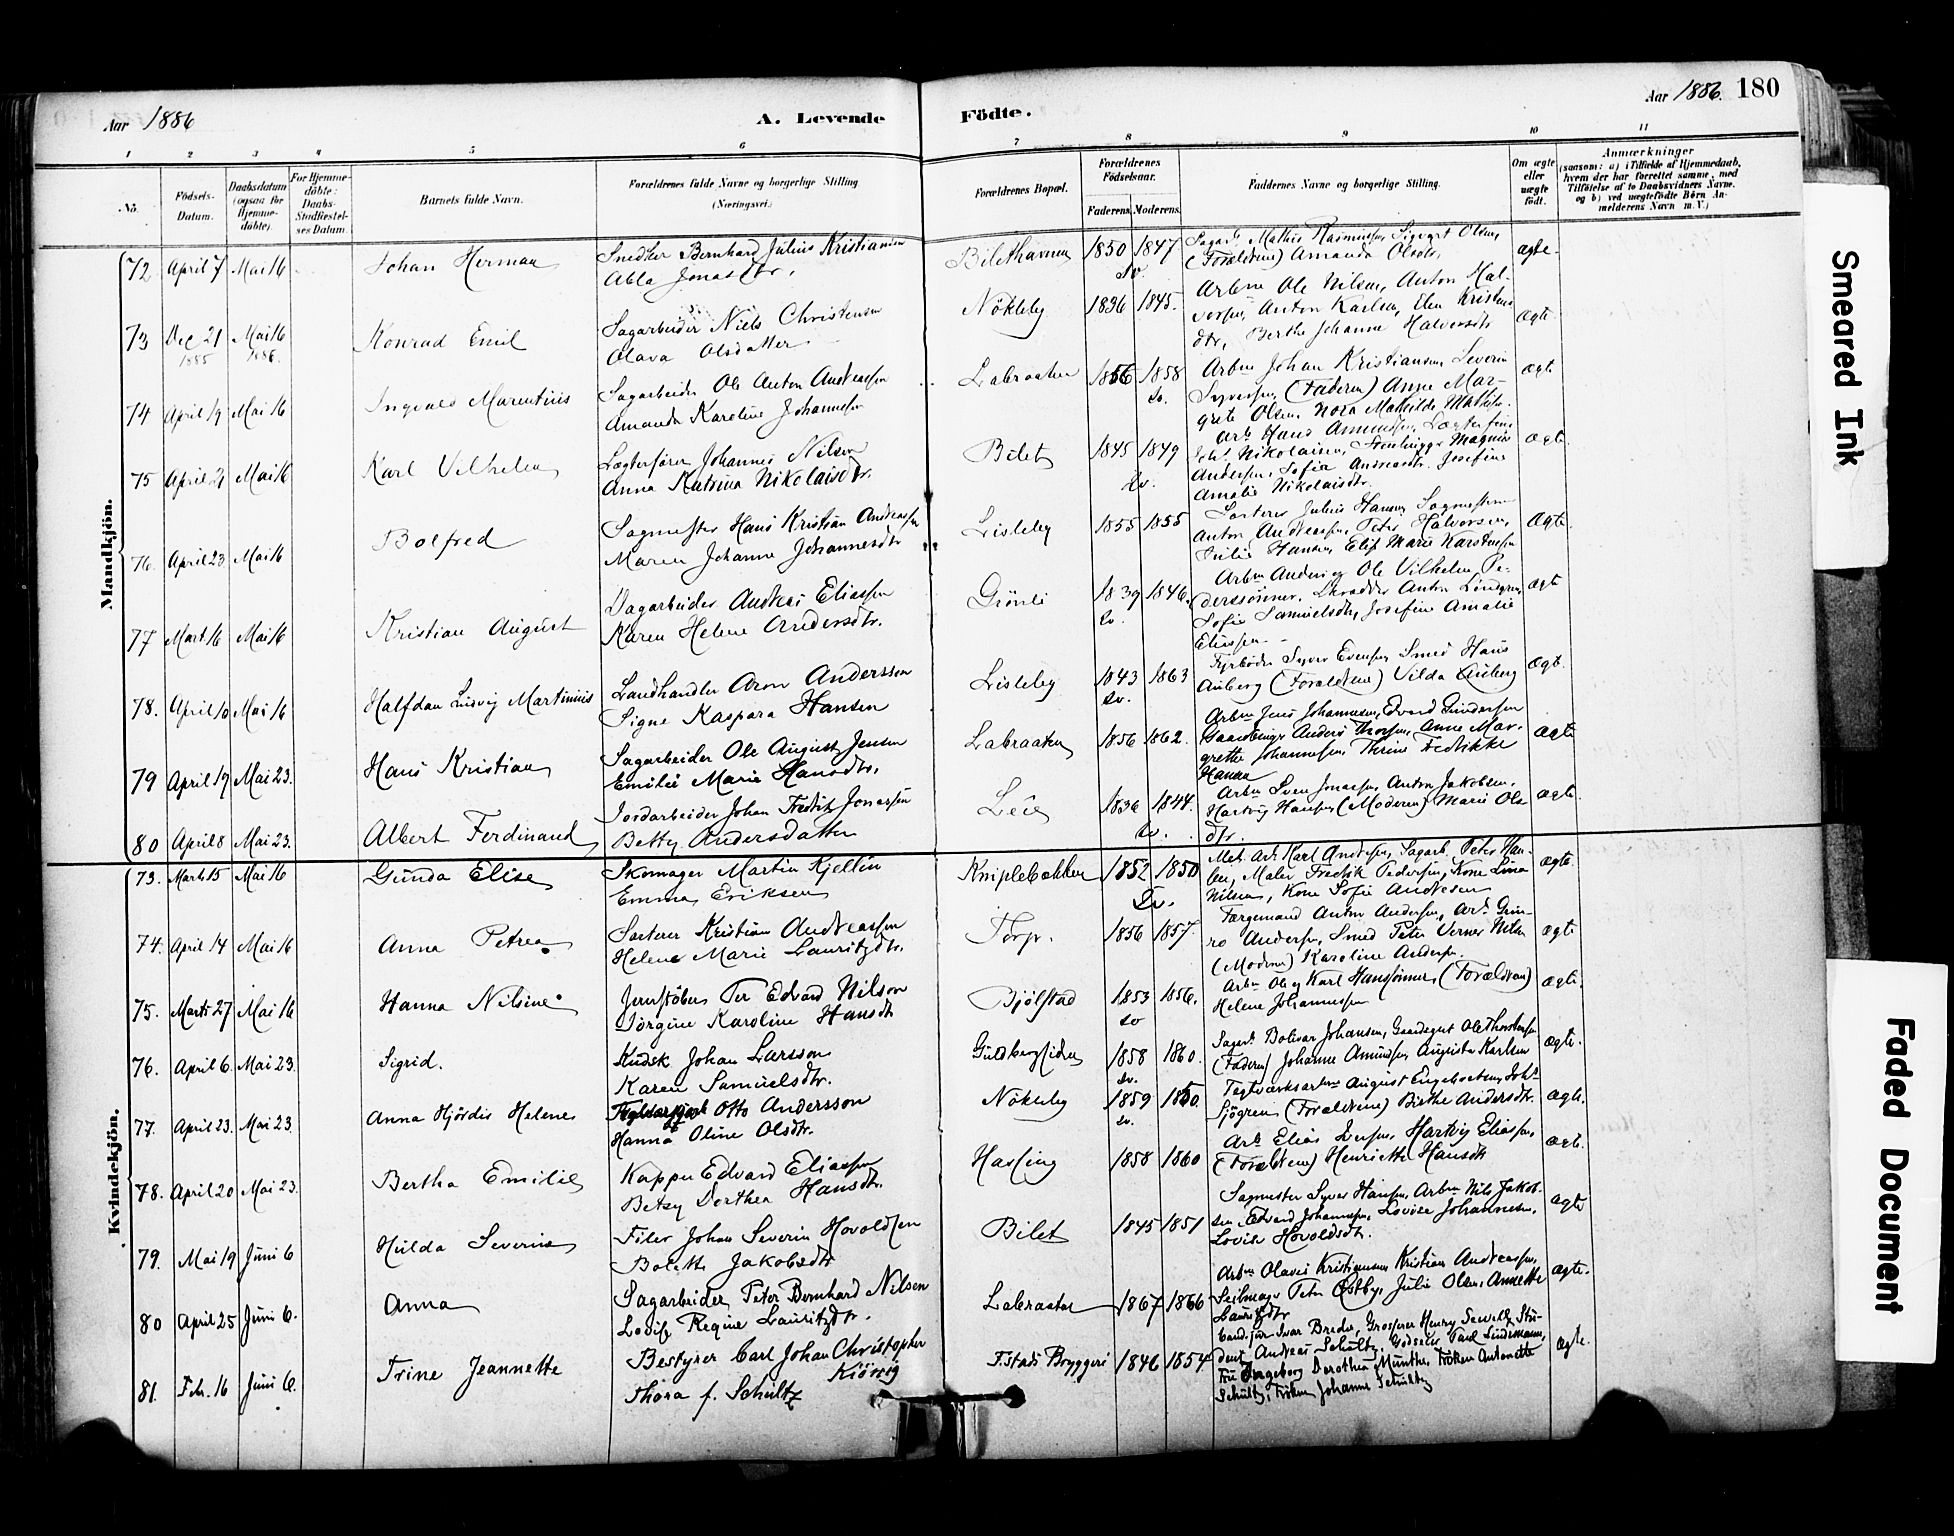 Aar 1886
A. Levende
Födte.
Aar 1886. 180
1 2 3 4 5 6 7 8 9 10 11
No.
Födsels-Datum.
Daabsdatum (ogsaa för Hjemme-döbte).
For Hjemme-döbte: Daabs-Stadfæstel-ses Datum.
Barnets fulde Navn.
Forældrenes fulde Navne og borgerlige Stilling (Næringsvei.)
Forældrenes Bopæl.
Forældrenes Födselsaar.
Faderens Moderens
Faddernes Navne og borgerlige Stilling.
Om ægte eller uægte födt.
Anmærkninger
(saasom: a) i Tilfælde af Hjemmedaab, hvem der har forrettet samme, med Tilföielse af to Daabsvidners Navne. og b) ved uægtefödte Börn Anmelderens Navn m. V.)
Mandkjön.
72 April 7 Mai 16 Johan Herman Snedker Bernhard Julius Kristiansen
Abla Jonasdtr. 1850 1847 ægte.
(Forældrene) Amanda Olsdtr.
73 Dec 21 1885 Mai 16 1886. Konrad Emil Sagarbeider Niels Christensen
Olava Olsdatter Nökleby 1836 1845. Arbm Ole Nilsen, Anton Hal-
vorsen, Anton Karlsen, Elen Kristens
dtr, Berthe Johanne Halvorsdtr ægte
74 April 19 Mai 16 Ingvald Marentius Sagarbeider Ole Anton Andreassen
Amanda Karoline Johannesen Labraaten 1856 1858 Arbm Johan Kristiansen, Severin
Syversen, (Faderen) Anne Mar-
grete Olsen, Nora Mathilde Mathis. ægte
75 April 2 Mai 16 Karl Vilhelm Lægterfører Johannes Nilsen
Anna Katrina Nikolaisdtr. Bilet 1845 1849 Arb. Hans Amundsen,
Nikolaisen, Stenhugger Magnus
Andersen, Sofia Andreasdtr. Josefine
Amalie Nikolaisdtr. ægte
76. April 23 Mai 16 Bolfred Sagmester Hans Kristian Andreassen
Maren Johanne Johannesdtr Lisleby 1855 1855 Sorterer Julius Hansen, Sagmester
Anton Andreassen, Peter Halvorsen,
Julie Hansen, Elise Marie Karstensen ægte
77 Mart 16 Mai 16 Kristian August Sagarbeider Andreas Eliassen
Karen Helene Andersdtr. Grönli 1839 1846. Arbm Anders og Ole Vilhelm Pe-
derssönner, Skrædder Anton Lindgren,
Sofie Samuelsdtr, Josefine Amalie
Eliassen ægte
78. April 10 Mai 16 Halfdan Ludvig Martinius Landhandler Aron Andersson
Signe Kaspara Hansen Lisleby 1843 1863 Fyrböder Syver Evensen, Smed Hans
Auberg (Forældrene) Vilda Auberg ægte
79 April 19 Mai 23. Hans Kristian Sagarbeider Ole August Jensen
Emilie Marie Hansdtr. Labraaten 1856 1862. Arbm Jens Johannesen, Edvard Gundersen
Anders Thorsen, Anne Mar-
grethe Johannesen, Thrine Fredrikke
Hansen ægte
80 April 8 Mai 23. Albert Ferdinand Jordarbeider Johan Fredrik Jonassen
Betty Andersdatter Leie 1836 1844. Arbm Sven Jonassen, Anton Jakobsen,
Hartvig Hansen (Moderen) Marie Ols
dtr. ægte
Kvindekjön.
73. Mart 15 Mai 16 Gunda Elise Skomager Martin Kjellin
Emma Eriksen Kniplebakken 1852 1850 Karl Andersen, Sagarb. Peter Han-
sen, Maler Fredrik Pedersen, Kone Lina
Nilsen, Kone Sofie Andresen ægte
74. April 14 Mai 16 Anna Petrea Sorterer Kristian Andreassen
Helene Marie Lauritzdtr. Torp. 1856 1857. Færgemand Anton Andersen,
Andersen, Smed Peter Verner Nilsen
(Moderen) Karoline Andersen ægte
75. Marts 27 Mai 16 Hanna Nilsine Jernstöber Per Edvard Nilson
Jörgine Karoline Hansdtr Bjölstad 1853 1856. Arbm Ole og Karl Hanssönner, (Forældrene)
Helene Johannessen ægte.
76. April 6. Mai 23. Sigrid. Kudsk Johan Larsson
Karen Samuelsdtr. Guldbergsiden 1858 1860. Sagarb. Bolivar Johansen, Gaardsgut Ole Thorstensen
(Faderen) Johanne Amundsen, Augusta Karlsen ægte.
77. April 23. Mai 23 Anna Hjördis Helene Otto Andersson
Hanna Oline Olsdtr. Nökleby 1859 1850. Teglværksarbm August Engebretsen,
Sjögren (Forældrene) Birthe Andersdtr. ægte.
78. April 20 Mai 23. Bertha Emilie Kapper Edvard Eliassen
Betsy Dorthea Hansdtr. Hasling 1858 1860 Arb. Elias Iversen, Hartvig Eliassen,
(Forældrene) Henriette Hansdtr ægte.
79. Mai 19 Juni 6 Hulda Severine Filer Johan Severin Hovoldsen
Bolette Jakobsdtr Bilet 1845 1851 Sagmester Syver Hansen, Arbm Nils Jakob-
sen, Edvard Johannesen, Lovise Johannesen,
Lovise Hovoldsdtr. ægte
80 April 25 Juni 6. Anna Sagarbeider Peter Bernhard Nilsen
Lovise Regine Lauritzdtr. Labraaten 1867 1866 Arbm Olaves Kristiansen, Kristian Andreassen,
Seilmager Peter Östby, Julie Olsen, Annette
Lauritzdtr ægte.
81. Febr. 16 Juni 6. Trine Jeannette Bestyrer Carl Johan Christopher
Kiönig
Thora f. Schultz Fstads Bryggeri 1846 1854 Cand. jur Ivar Bredo, Grosserer Henry Sewell, Stu-
dent Andreas Schultz, Godseier Paul Lindemann,
Fru Ingeborg Dorothea Munthe, Fröken Antonette
Schultz, Fröken Johanne Schultz ægte.
Smeared Ink
Faded Document